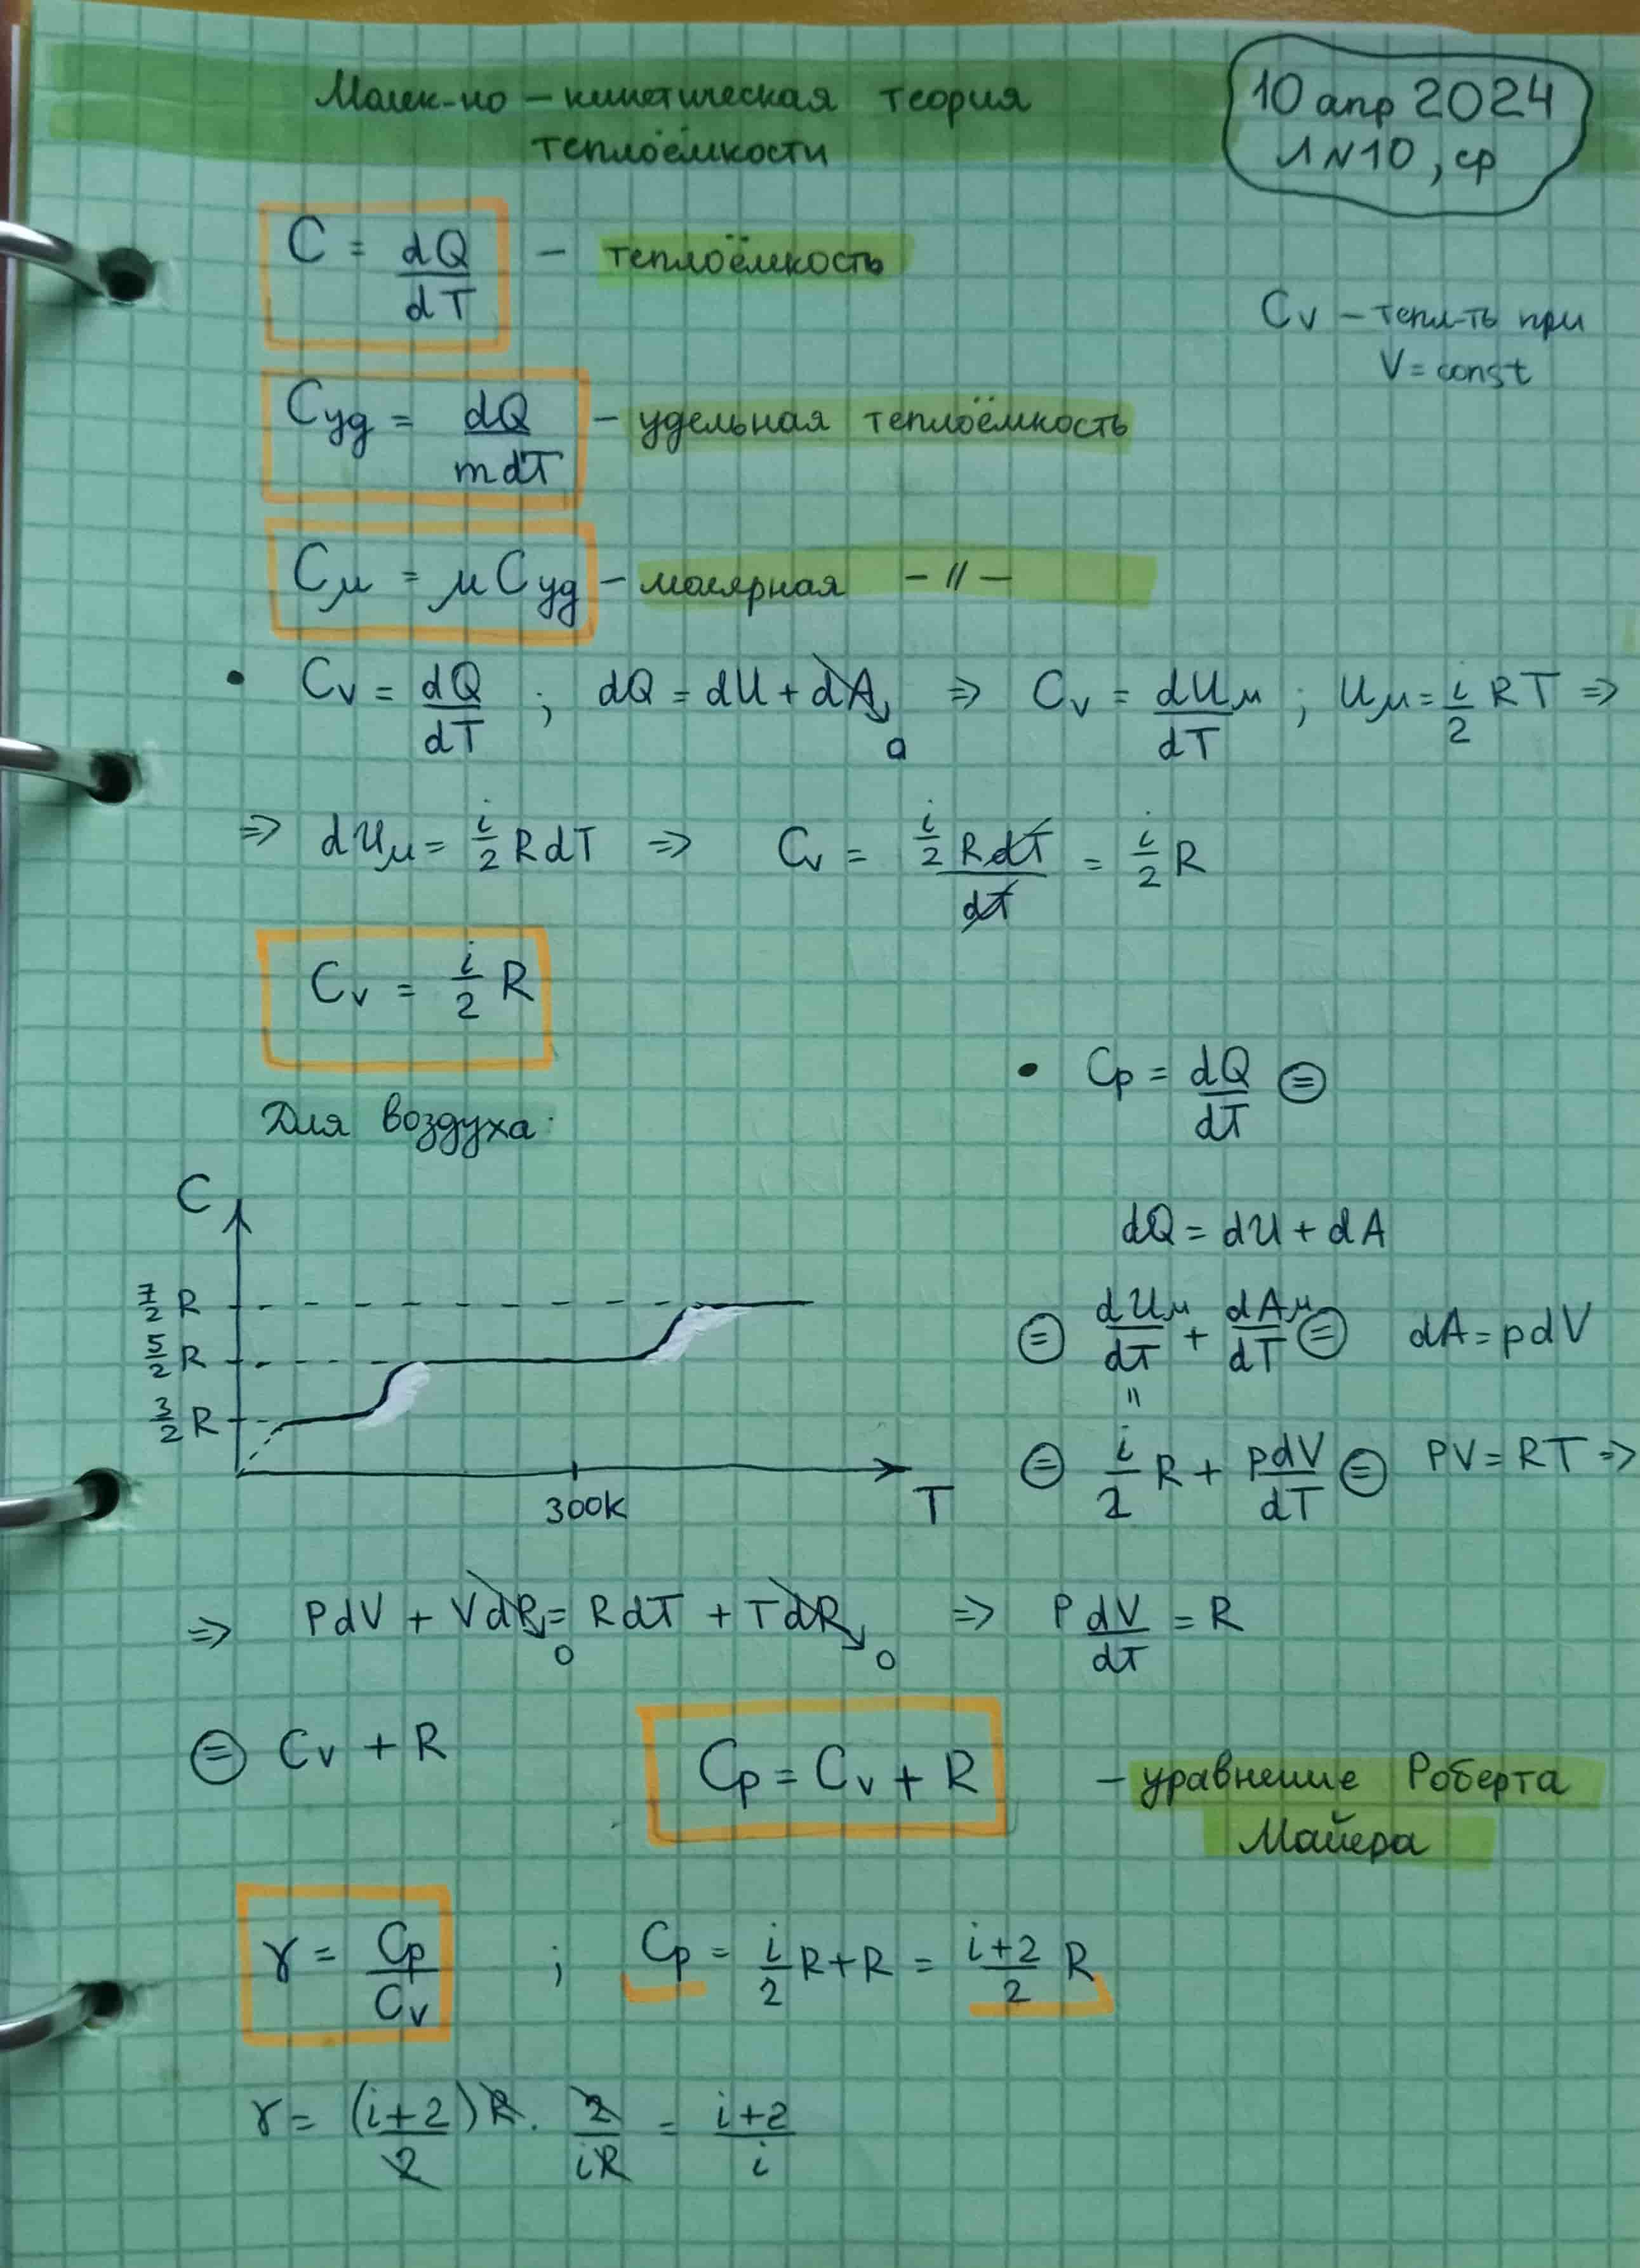 Молек-но – кинетическая теория
теплоёмкости
10 апр 2024
Л N10, ср
C = dQ/dT – теплоёмкость
Cv – тепл-ть при
V = const
Cуд = dQ/mdT – удельная теплоёмкость
Cμ = μCуд – молярная –//–
• Cv = dQ/dT ; dQ = dU + dA 0 ⇒ Cv = dUμ/dT ; Uμ = i/2 RT ⇒
⇒ dUμ = i/2 RdT ⇒ Cv = i/2 RdT/dT = i/2 R
Cv = i/2 R
• Cp = dQ/dT ⊜
Для воздуха:
C
7/2 R
5/2 R
3/2 R
300K
T
dQ = dU + dA
⊜ dUμ/dT + dAμ/dT ⊜ dA = pdV
"
⊜ i/2 R + pdV/dT ⊜ PV = RT ⇒
⇒ PdV + VdP 0 = RdT + TdR 0 ⇒ P dV/dT = R
⊜ Cv + R
Cp = Cv + R – уравнение Роберта
Майера
γ = Cp/Cv ; Cp = i/2 R + R = i+2/2 R
γ = (i+2)R/2 · 2/iR = i+2/i